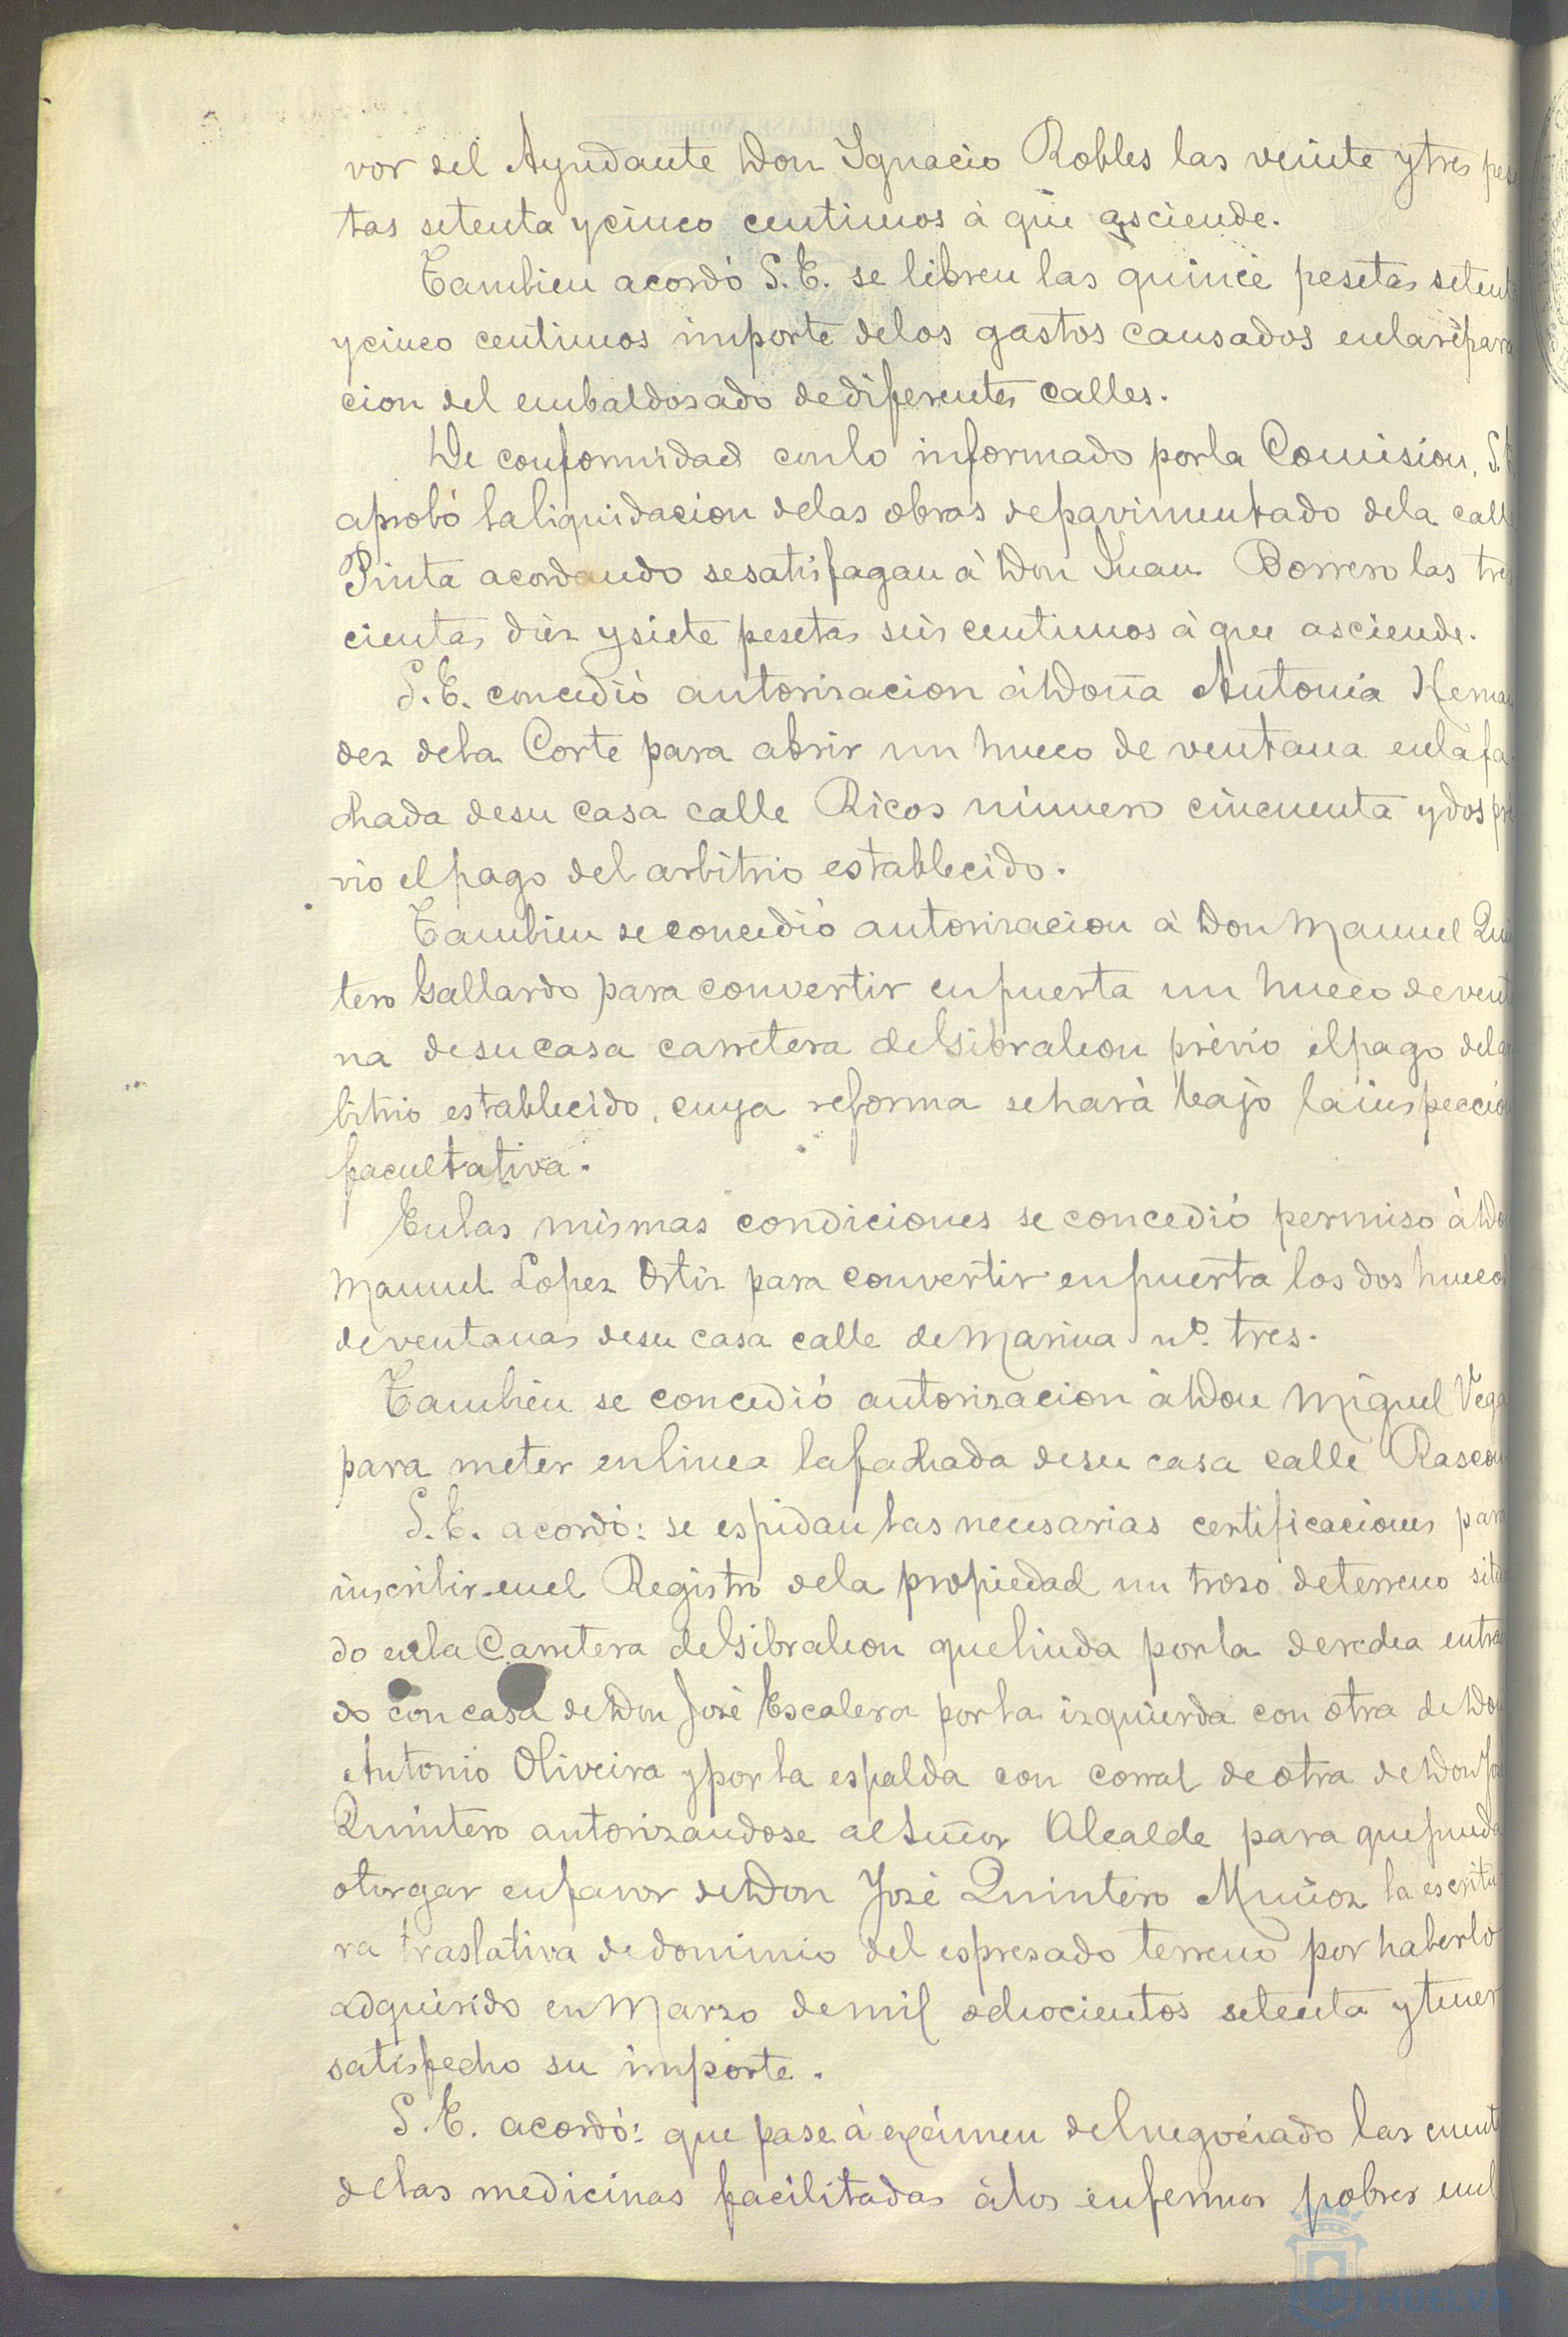 vor del Ayudante Don Ignacio Robles las veinte y tres pese
tas setenta y cinco centimos à que asciende.
Tambien acordó S. E. se libren las quince pesetas setent
y cinco centimos importe de los gastos causados en la repara
cion del embaldosado de diferentes calles.
De conformidad con lo informado por la Comision, S. E
aprobó la liquidacion de las obras de pavimentado de la calle
Pinta acordando se satisfagan à Don Juan Borrero las tres
cientas diez y siete pesetas seis centimos à que asciende.
S. E. concedió autorizacion à Doña Antonia Hernan
dez de la Corte para abrir un hueco de ventana en la fa
chada de su casa calle Ricos número cincuenta y dos pre
vio el pago del arbitrio establecido.
Tambien se concedió autorizacion à Don Manuel Quin
tero Gallardo para convertir en puerta un hueco de vent
na de su casa carretera de Gibraleon prévio el pago del ar
bitrio establecido, cuya reforma se hará bajo la inspecció
facultativa.
En las mismas condiciones se concedió permiso à Do
Manuel Lopez Ortiz para convertir en puerta los dos huecos
de ventanas de su casa calle de Marina nº. tres.
Tambien se concedió autorizacion à Don Miguel Vega
para meter en linea la fachada de su casa calle Rascon
S. E. acordó: se espidan las necesarias certificaciones para
inscribir en el Registro de la propiedad un trozo de terreno situa
do en la Carretera de Gibraleon que linda por la derecha entran
do con casa de Don José Escalera por la izquierda con otra de Don
Antonio Oliveira y por la espalda con corral de otra de Don Jo
Quintero autorizandose al Señor Alcalde para que pueda
otorgar en favor de Don José Quintero Muñoz la escritu
ra traslativa de dominio del espresado terreno por haberlo
adquirido en Marzo de mil ochocientos setenta y tener
satisfecho su importe.
S. E. acordó: que pase à exámen del negociado las cuent
de las medicinas facilitadas à los enfermos pobres en el
HUELVA